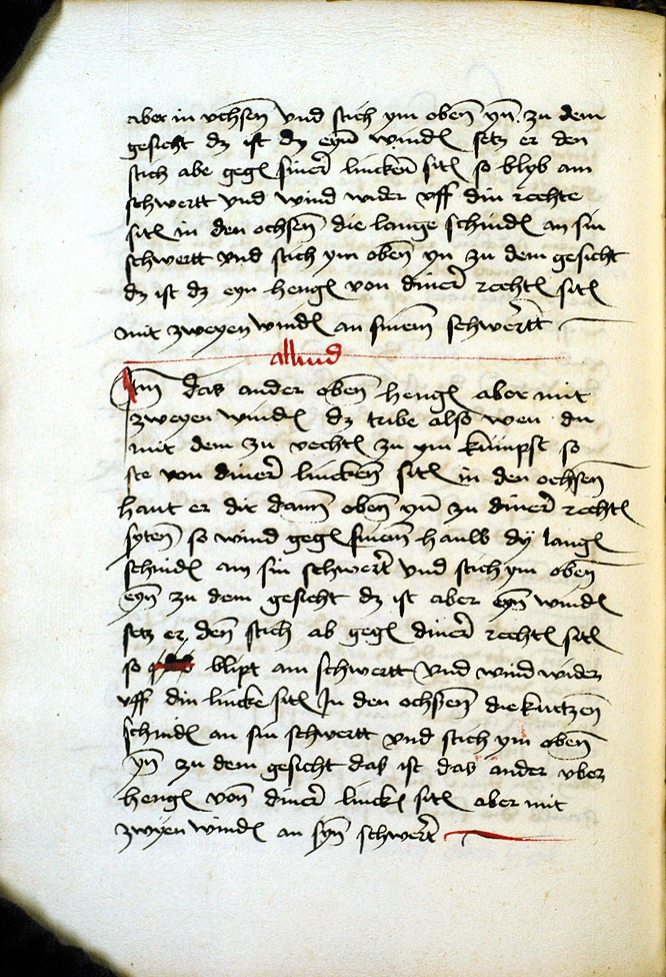 aber in ochsen vnd stich ym oben yn zu dem
gesicht dz ist dz eyn winden setz er den
stich abe gegen siner lincken siten so blyb am
schwertt vnd wind wider vff din rechte
siten in den ochsen die lange schniden an sin
schwertt vnd stich ym oben yn zu dem gesicht
dz ist dz eyn hengen von diner rechten siten
mit zweyen winden an sinem schwertt
aliud
Nun das ander oben hengen aber mit
zweyen winden dz tribe also wen du
mit dem zu vechten zu ym kumpst so
ste von diner lincken siten in den ochsen
hant er dir dann oben yn zu diner rechten
syten so wind gegen sinem haulb dy langen
schniden am sin schwert vnd stich ym oben
eyn zu dem gesicht dz ist aber eyn winden
setz er den stich ab gegen diner rechten siten
so blipt am schwertt vnd wind wider
vff din lincke siten In den ochsen die kurtzen
schniden an sin schwertt vnd stich ym oben
yn zu dem gesicht das ist das ander vber
hengen von diner lincken siten aber mit
zwyen winden an syn schwert